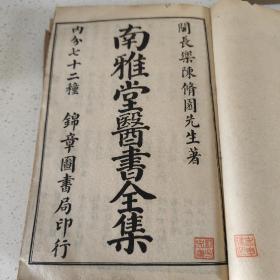 閩長樂陳脩園先生著
南雅堂醫書全集
內分七十二種
錦章圖書局印行